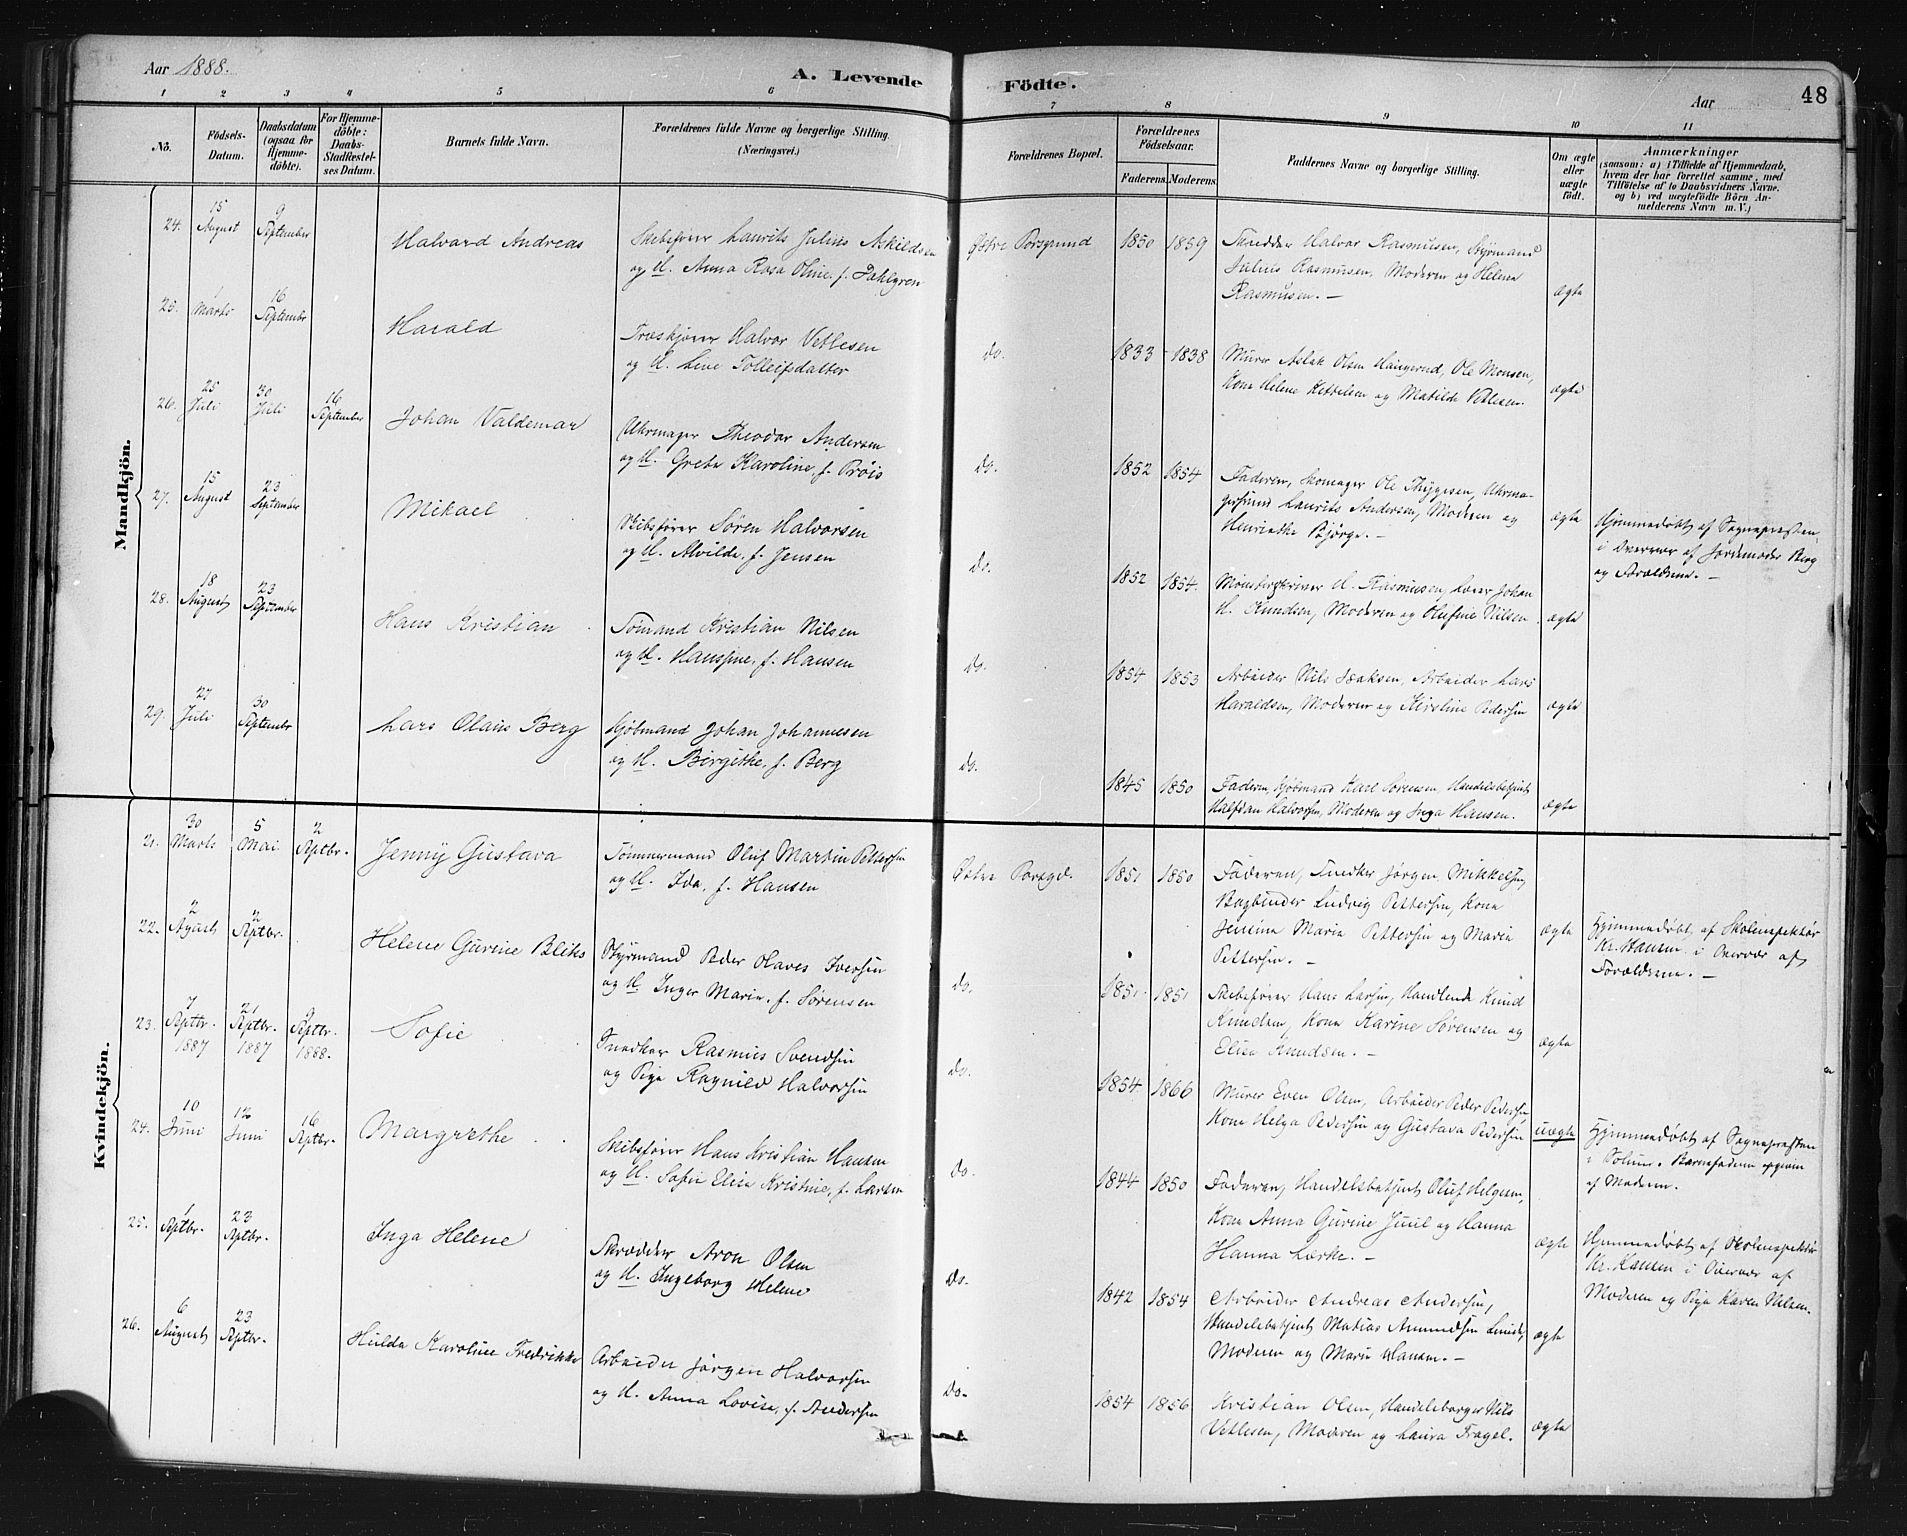 Aar 1888.
A. Levende Födte.
Aar
48
1 2 3 4 5 6 7 8 9 10 11
Nò.
Födsels-Datum.
Daabsdatum (ogsaa for Hjemmedöbte).
For Hjemmedöbte: Daabs-Stadfæstelses Datum.
Barnets fulde Navn.
Forældrenes fulde Navne og borgerlige Stilling.
(Næringsvei.)
Forældrenes Bopæl.
Forældrenes Födselsaar.
Faderens. Moderens.
Faddernes Navne og borgerlige Stilling.
Om ægte eller uægte födt.
Anmærkninger
(saasom: a) i Tilfælde af Hjemmedaab,
hvem der har forrettet samme, med
Tilföielse af to Daabsvidners Navne.
og b) ved uægtefödte Börn An-
melderens Navn m. V.)
Mandkjön.
24. 15 August 9 September
Halvard Andreas
Skibsfører Laurits Julius Askildsen
og H. Anna Rosa Oline, f. Dahlgren
Østre Porsgrund
1850 1859
Snedker Halvor Rasmussen, Styrmand
Julius Rasmusen, Moderen og Helene
Rasmusen. —
ægte
25. 1 Marts 16 September
Harald
Træskjærer Halvor Vetlesen
og H. Lene Tolleifsdatter
do.
1833 - 1838
Murer Aslak Olsen Haugerud, Ole Monsen,
Kone Helene Kettelsen og Matilde Vetlesen.
ægte
26. 25 Juli 30 Juli 16 September
Johan Valdemar
Uhrmager Theodor Andersen
og H. Grete Karoline, f. Prøis
do.
1852 1854
Faderen, Skomager Ole Thygesen, Uhrma-
gersvend Laurits Andersen, Moderen og
Henriette Bjørge. —
ægte
Hjemmedøbt af Sognepresten
i Overvær af Jordemoder Berg
og Forældrene. —
27. 15 August 23 September
Mikael
Skibsfører Søren Halvorsen
og H. Alvilde, f. Jensen
do.
1852 1854.
Mønsterskriver H. Rasmussen, Lærer Johan
H. Knudsen, Moderen og Olufine Nilsen.
ægte
28. 18 August 23 September
Hans Kristian
Sømand Kristian Nilsen
og H. Hansine, f. Hansen
do.
1854 1853
Arbeider Nils Isaksen, Arbeider Lars
Haraldsen, Moderen og Kirstine Pedersen
ægte
29. 27 Juli 30 September
Lars Olaus Berg
Kjøbmand Johan Johannesen
og H. Birgithe, f. Berg
do.
1845 1850
Faderen, Kjøbmand Karl Sørensen, Handelsbetjent
Halfdan Halvorsen, Moderen og Inga Hansen.
ægte
Kvindekjön.
21. 30 Marts 5 Mai 2 Septbr.
Jenny Gustava
Tømmermand Oluf Martin Pettersen
og H. Ida, f. Hansen
Østre Porsgd.
1851 1850
Faderen, Snedker Jørgen Mikkelsen,
Bogbinder Ludvig Pettersen, Kone
Jensine Marie Pettersen og Maria
Pettersen. —
ægte
Hjemmedøbt af Skoleinspektør
Kr. Hansen i Overvær af
Forældrene. —
22. 2 August 2 Septbr.
Helene Gurine Bleks
Styrmand Peder Olaves Iversen
og H. Inger Marie, f. Sørensen
do.
1851 1851
Skibsfører Hans Larsen, Handlende Knud
Knudsen, Kone Karine Sørensen og
Elise Knudsen. —
ægte
23. 7 Septbr. 1887 21 Septbr. 1887 9 Septbr. 1888.
Sofie
Snedker Rasmus Svendsen
og Pige Ragnild Halvorsen
do.
1854 1866
Murer Even Olsen, Arbeider Peder Pedersen,
Kone Helga Pedersen og Gustava Pedersen
uægte
Hjemmedøbt af Sognepresten
i Solum. Barnefaderen opgiven
af Moderen.
24. 10 Juni 12 Juni 16 Septbr.
Margrethe
Skibsfører Hans Kristian Hansen
og H. Sofie Elise Kristine, f. Larsen
do.
1844 1850
Faderen, Handelsbetjent Oluf Helgesen,
Kone Anna Gurine Juul og Hanna
Hanna Lærke. —
ægte
Hjemmedøbt af Skoleinspektør
Kr. Hansen i Overvær af
Moderen og Pige Karen Nilsen.
25. 1 Septbr. 23 Septbr.
Inga Helene
Skrædder Aron Olsen
og H. Ingeborg Helene
do.
1842 1854
Arbeider Andreas Andersen,
Handelsbetjent Matias Amundsen Linde,
Moderen og Marie Hansen. —
ægte
26. 6 August 23 Septbr.
Hulda Karoline Fredrikke
Arbeider Jørgen Halvorsen
og H. Anna Lovise, f. Andersen
do.
1854 1856
Kristian Olsen, Handelsborger Nils
Vetlesen, Moderen og Laura Fragel.
ægte